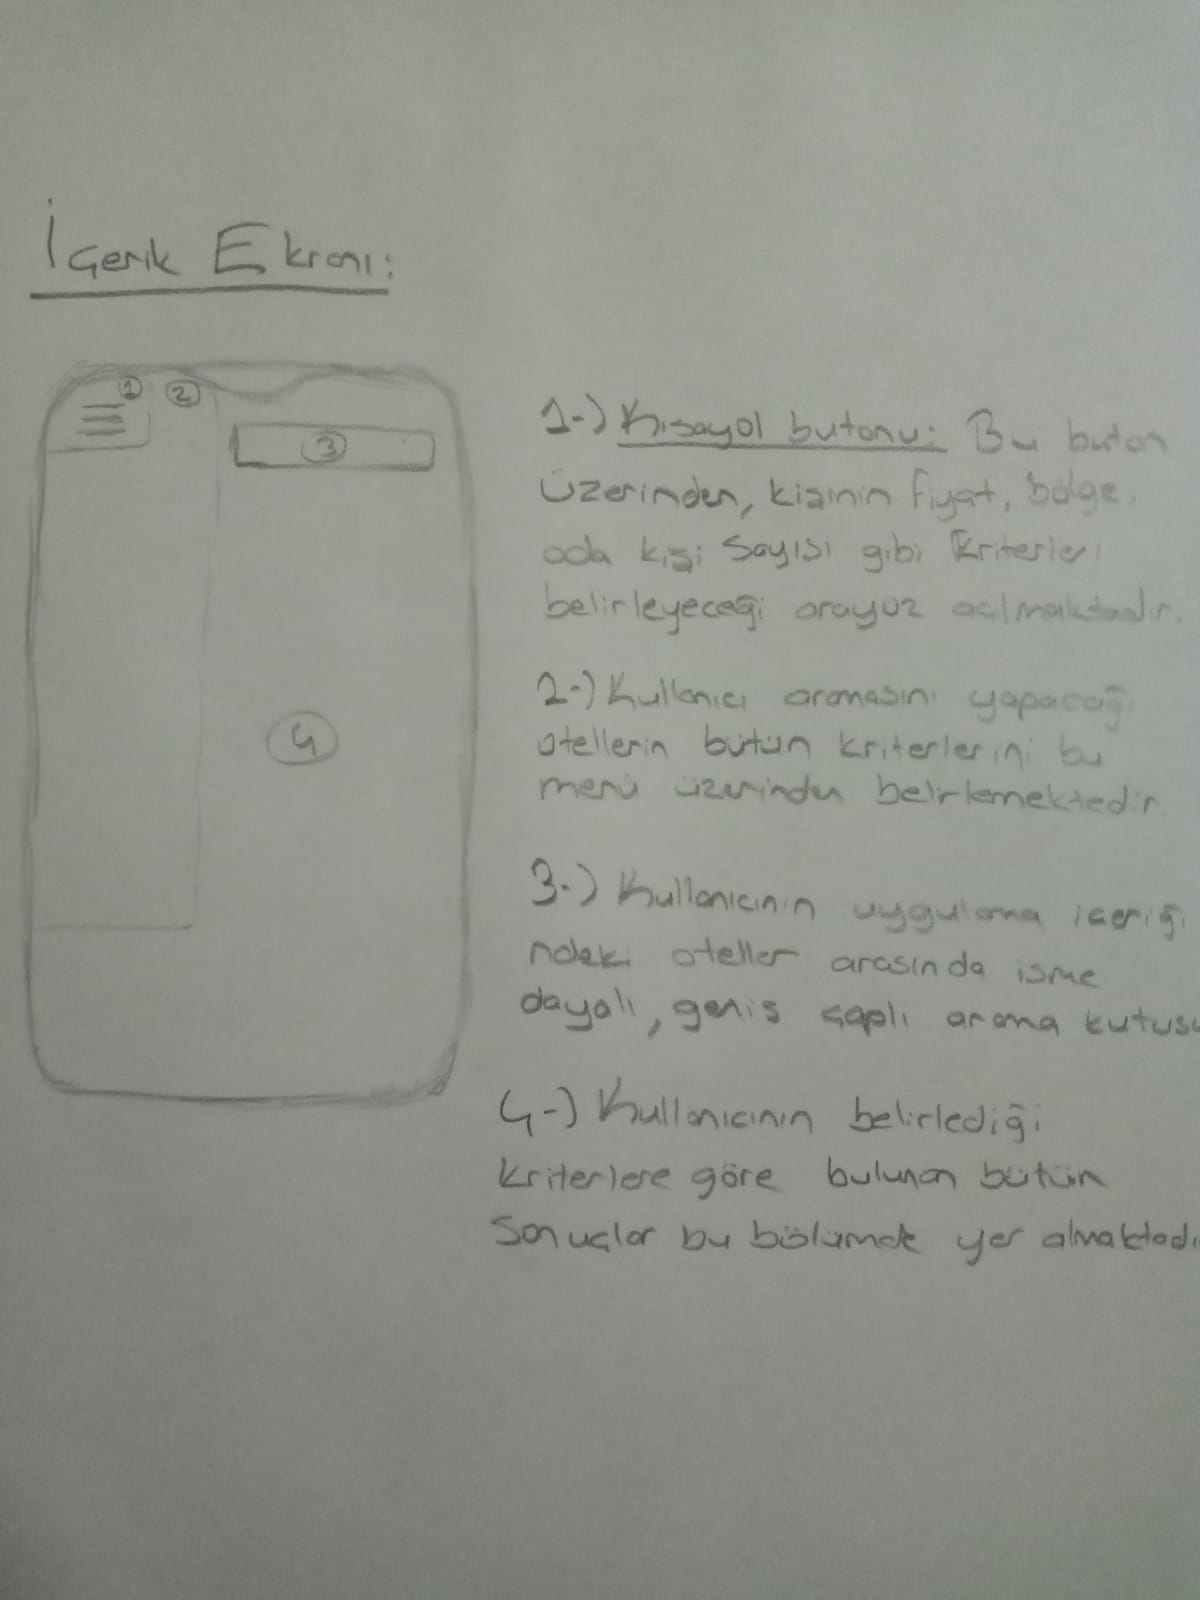 İçerik Ekranı:
1
2
3
4
1-) Kısayol butonu: Bu buton
üzerinden, kişinin fiyat, bölge,
oda kişi sayısı gibi kriterleri
belirleyeceği arayüz açılmaktadır.
2-) Kullanıcı aramasını yapacağı
otellerin bütün kriterlerini bu
menü üzerinden belirlemektedir.
3-) Kullanıcının uygulama içeriği
ndeki oteller arasında isme
dayalı, geniş çaplı arama kutusu
4-) Kullanıcının belirlediği
kriterlere göre bulunan bütün
Sonuçlar bu bölümde yer almaktadı